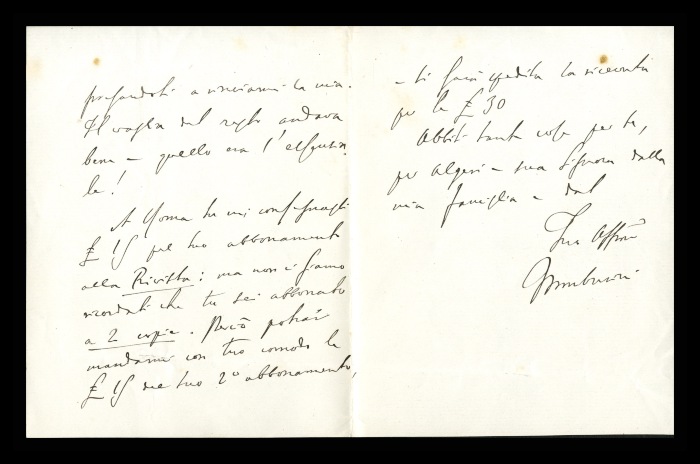 a inviarmi la mia.
Il vaglia del  andava
bene – quello era l'
le!
A Roma tu mi consegnasti
£ 15 pel tuo abbonamento
alla Rivista: ma non ci siamo
ricordati che tu sei abbonato
a 2 copie. Perciò potrai
mandarmi con tuo comodo le
£ 15 del tuo 2º abbonamento,
e ti sarà spedita la ricevuta
per le £ 30
Abbiti tante cose per te,
per Algeri e sua Signora dalla
mia famiglia e dal
Tuo Affmo